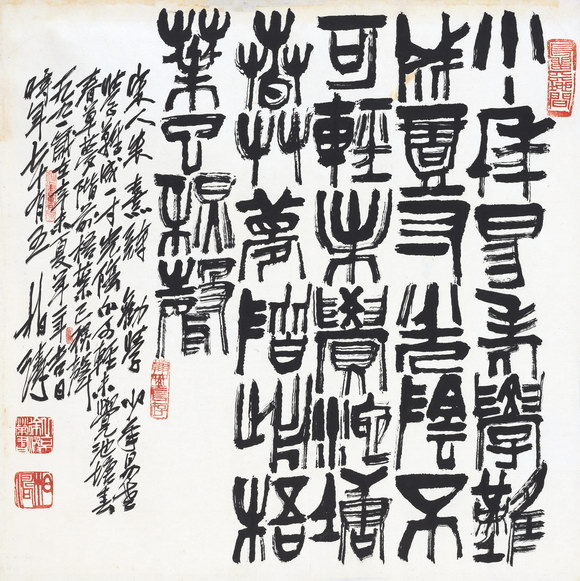 少年易老學難
成壹寸光陰不
可輕未覺池塘
春草夢階前梧
葉已秋聲
宋人朱熹詩 勸學 少年易老
學難成一寸光陰不可輕未覺池塘
春草夢階前梧葉已秋聲
歲在辛未夏年吉日
時年七十有五